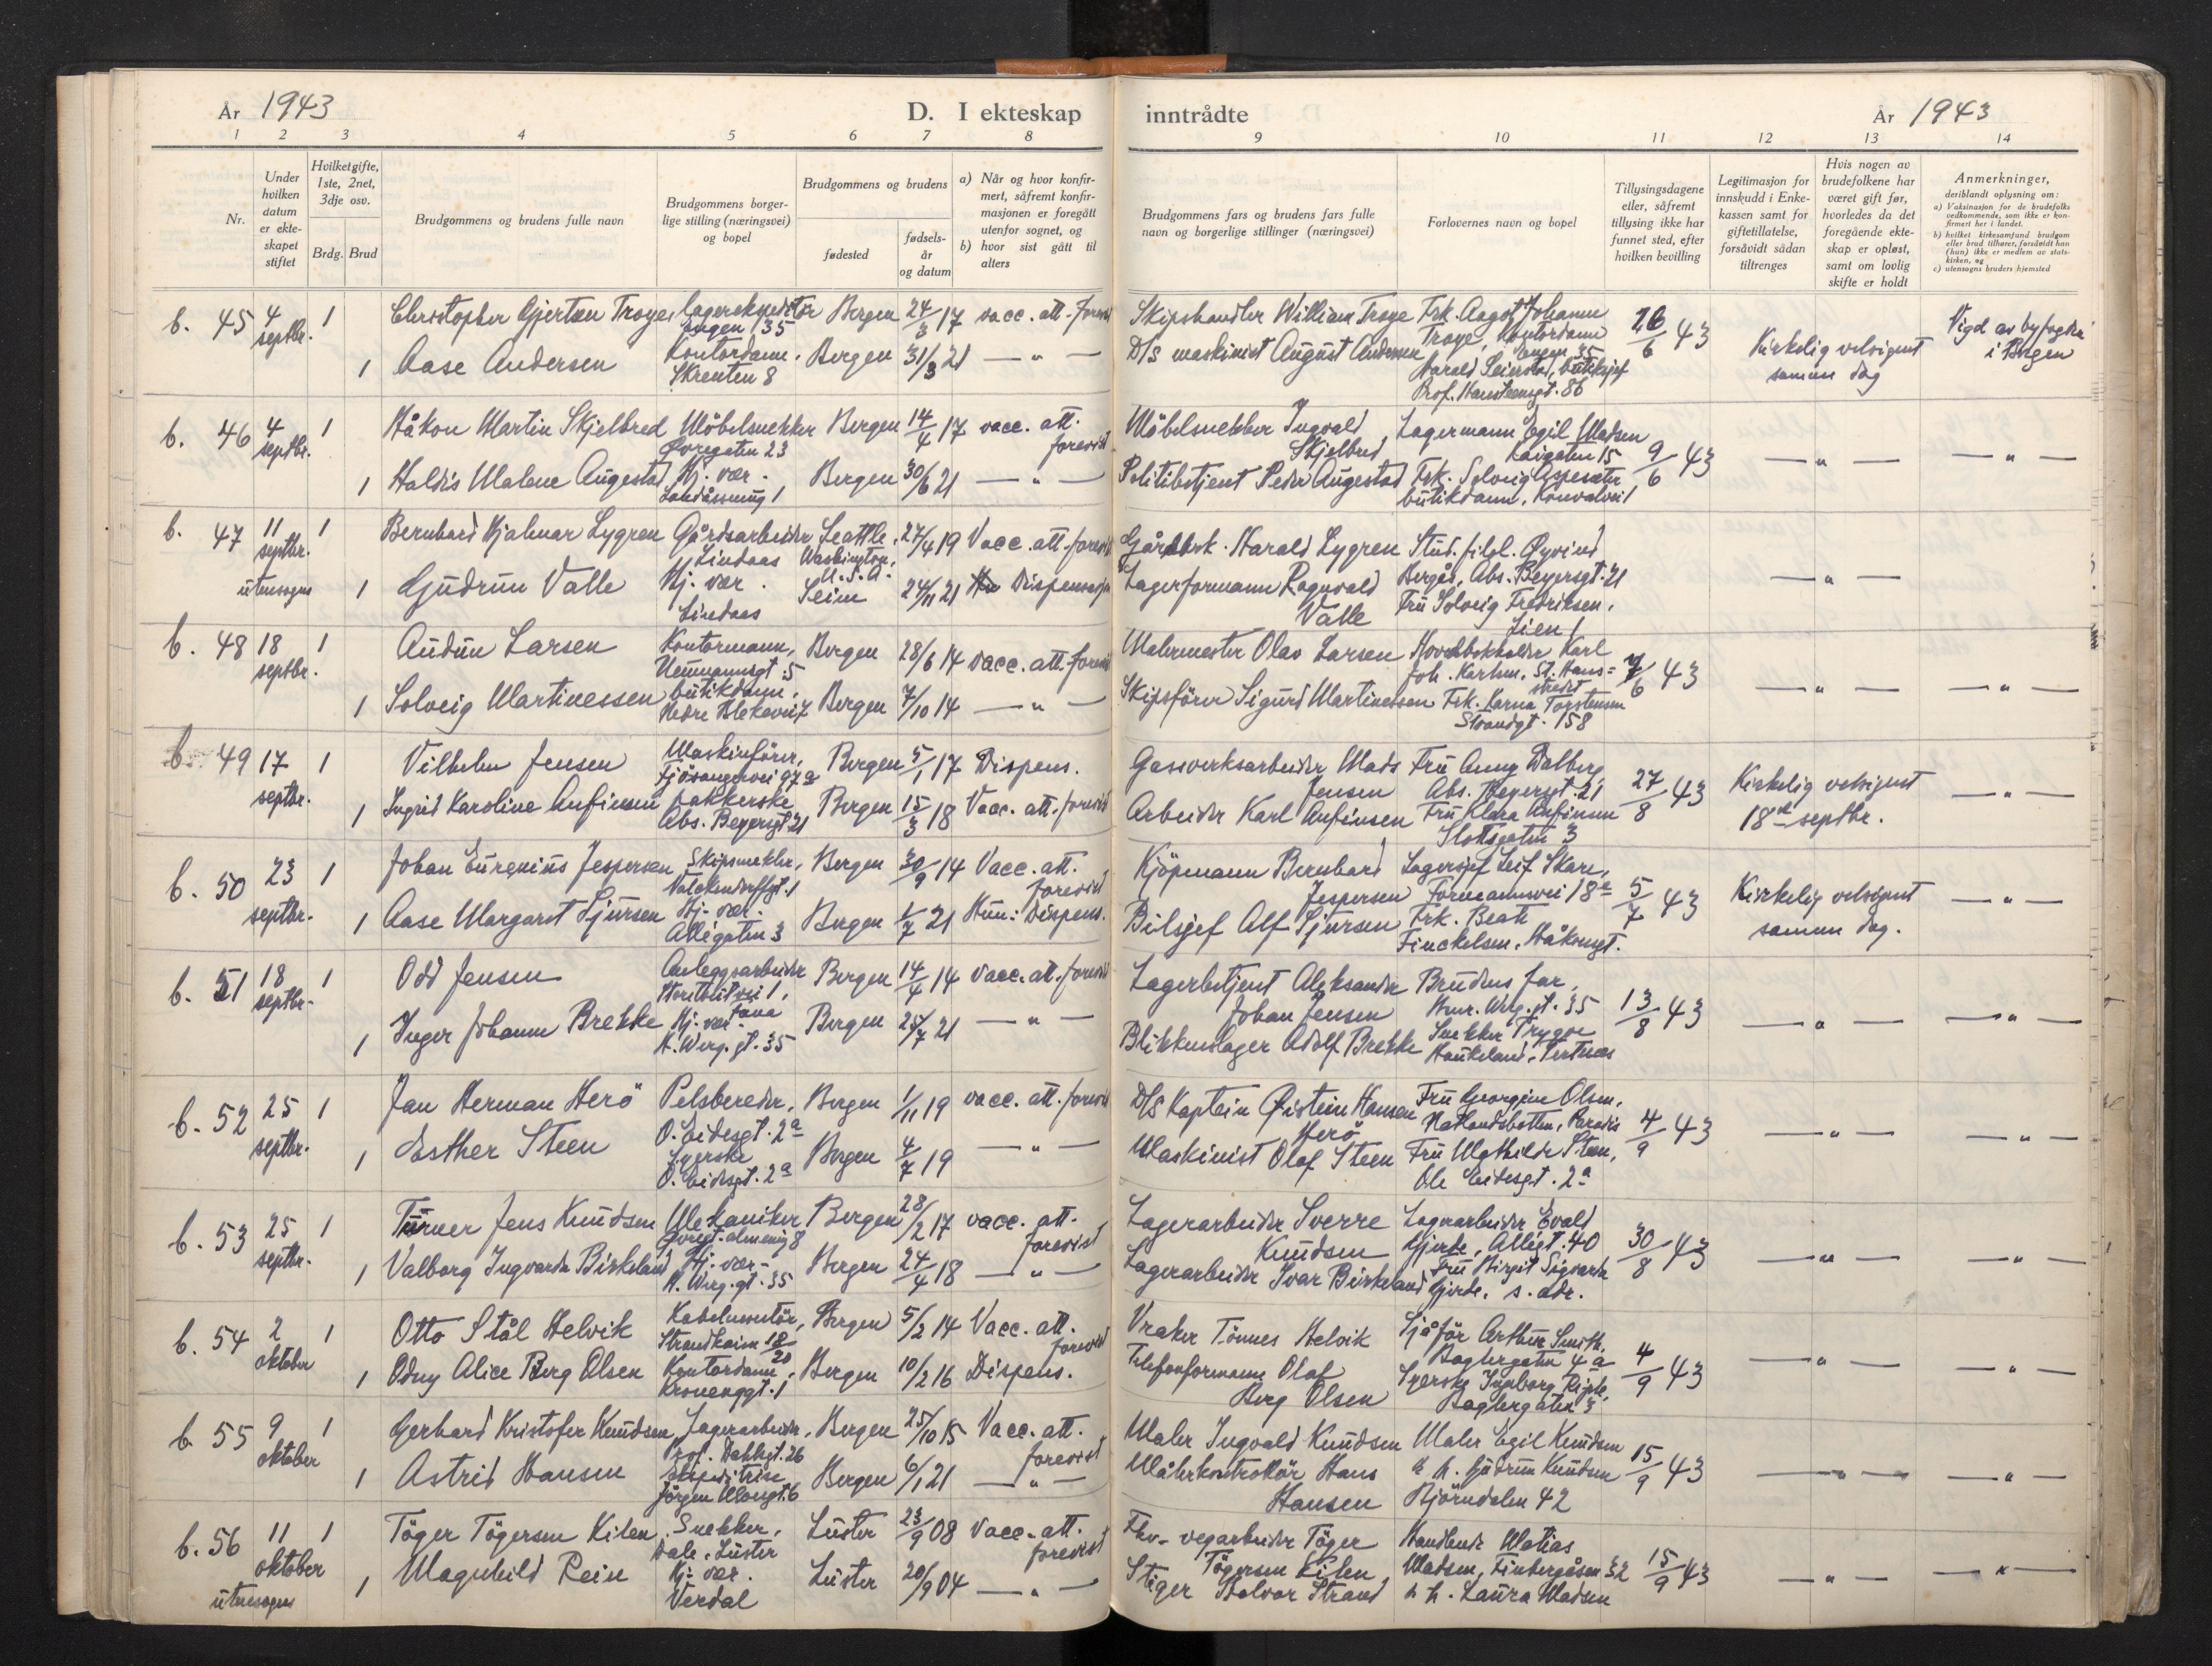 År 1943
D. I ekteskap inntrådte
År 1943
1 2 3 4 5 6 7 8 9 10 11 12 13 14
Nr.
Under hvilken datum er ekteskapet stiftet
Hvilket gifte, 1ste, 2net, 3dje osv.
Brdg. Brud
Brudgommens og brudens fulle navn
Brudgommens borgerlige stilling (næringsvei) og bopel
Brudgommens og brudens
fødested
fødselsår og datum
a) Når og hvor konfirmert, såfremt konfirmasjonen er foregått utenfor sognet, og
b) hvor sist gått til alters
Brudgommens fars og brudens fars fulle navn og borgerlige stillinger (næringsvei)
Forlovernes navn og bopel
Tillysingsdagene eller, såfremt tillysing ikke har funnet sted, efter hvilken bevilling
Legitimasjon for innskudd i Enkekassen samt for giftetillatelse, forsåvidt sådan tiltrenges
Hvis nogen av brudefolkene har været gift før, hvorledes da det foregående ekteskap er opløst, samt om lovlig skifte er holdt
Anmerkninger, deriblandt oplysning om:
a) Vaksinasjon for de brudefolks vedkommende, som ikke er konfirmert her i landet.
b) hvilket kirkesamfund brudgom eller brud tilhører, forsåvidt han (hun) ikke er medlem av statskirken, og
c) utensogns bruders hjemsted
b. 45 4 septbr. 1 Christopher Gjertsen Troye, lagerekspeditör Engen 35 Bergen 24/3 17 vacc. att. forevist
Skipshandler William Troye Frk. Aagot Johanne Troye, Kontordame Engen 35 26/6 43 Kirkelig velsignet samme dag Vigd av byfogden i Bergen
1 Aase Andersen Kontordame, Skrenten 8 Bergen 31/3 21 — " —
D/S maskinist August Andersen Harald Seierstad, butikksjef Prof. Hansteensgt. 86
b. 46 4 septbr. 1 Håkon Martin Skjelbred Möbelsnekker Øvregaten 23 Bergen 14/4 17 vacc. att. forevist
Möbelsnekker Ingvald Skjelbred Lagermann Egil Madsen Kaigaten 15 9/6 43 — " — — " —
1 Haldis Malene Augestad Hj. vær. Landåssvung 1 Bergen 30/6 21 — " —
Politibetjent Peder Augestad Frk. Solveig Aspesæter butikdame, Konvalvei 1
b. 47 11 septbr. utensogns 1 Bernhard Hjalmar Lygren Gårdsarbeider Lindaas Seattle, Washington, U.S.A. 27/4 19 Vacc. att. forevist
Gårdbrk. Harald Lygren Stud. filol. Øyvind Bergås, Abs. Beyersgt. 21 — " —
1 Gudrun Valle Hj. vær. Lindaas Seim 24/11 21 Dispensasjon
Lagerformann Ragnvald Valle Fru Solveig Fredriksen, Lien 1
b. 48 18 septbr. 1 Audun Larsen Kontormann, Neumannsgt. 5 Bergen 28/6 14 vacc. att. forevist
Malermester Olav Larsen Hovedbokholder Karl Joh. Karlsen, St. Hans=stredet 7/6 43 — " — — " —
1 Solveig Martinessen butikdame, Nedre Blekevei 7 Bergen 7/10 14 — " —
Skipsförer Sigurd Martinessen Frk. Karna Torstensen Strandgt. 158
b. 49 17 septbr. 1 Vilhelm Jensen Maskinförer, Fjösangervei 97a Bergen 5/1 17 Dispens.
Gassverksarbeider Mads Jensen Fru Anny Dalberg, Abs. Beyersgt. 21 27/8 43 Kirkelig velsignet 18de septbr. — " —
1 Ingrid Karoline Anfinsen pakkerske Abs. Beyersgt 21 Bergen 15/3 18 Vacc. att. forevist
Arbeider Karl Anfinsen Fru Klara Anfinsen Slottsgaten 3
b. 50 23 septbr. 1 Johan Eurenius Jespersen Skipsmekler, Valckendorffgt. 1 Bergen 30/9 14 Vacc. att. forevist
Kjöpmann Bernhard Jespersen Lagersjef Leif Skare, Formannsvei 18e 5/7 43 Kirkelig velsignet samme dag. — " —
1 Aase Margaret Sjursen Hj. vær. Allégaten 3 Bergen 1/7 21 Hun: Dispens.
Bilsjef Alf Sjursen Frk. Beate Finckelsen, Håkonsgt.
b. 51 18 septbr. 1 Odd Jensen Anleggsarbeider Storetveitvei 1, Fana Bergen 14/4 14 vacc. att. forevist
Lagerbetjent Aleksander Johan Jensen Brudens far, Henr. Werg. gt. 35 13/8 43 — " — — " —
1 Inger Johanne Brekke Hj. vær. H. Werg. gt. 35 Bergen 25/7 21 — " —
Blikkenslager Adolf Brekke Snekker Trygve Haukeland, Tertnæs
b. 52 25 septbr. 1 Jan Herman Herö Pelsbereder, O. Eidesgt. 2a Bergen 1/11 19 vacc. att. forevist
D/S Kaptein Øistein Hansen Herö Fru Georgine Olsen, Natlandsbotten, Paradis 4/9 43 — " — — " —
1 Esther Steen Syerske O. Eidesgt. 2a Bergen 4/7 19 — " —
Maskinist Olaf Steen Fru Mathilde Steen, Ole Eidesgt. 2a
b. 53 25 septbr. 1 Turner Jens Knudsen Mekaniker Øvregt. almenning 8 Bergen 28/2 17 vacc. att. forevist
Lagerarbeider Sverre Knudsen Lagerarbeider Evald Gjerde, Allégt. 40 30/8 43 — " — — " —
1 Valborg Ingvarda Birkeland Hj. vær. H. Werg. gt. 35 Bergen 24/4 18 — " —
Lagerarbeider Ivar Birkeland Fru Birgit Sigvarda Gjerde, s. adr.
b. 54 2 oktober 1 Otto Stål Helvik Kabelmontör, Strandkaien 18/20 Bergen 5/2 14 Vacc. att. forevist
Vraker Tönnes Helvik Sjåför Arthur Smith, Baglergaten 4a 4/9 43 — " — — " —
1 Odny Alice Berg Olsen Kontordame, Kronenggt. 1 Bergen 10/2 16 Dispens.
Telefonformann Olaf Berg Olsen Syerske Ingeborg Riple, Baglergaten 3
b. 55 9 oktober 1 Gerhard Kristofer Knudsen, Lagerarbeider, Prof. Dahlsgt. 26 Bergen 25/10 15 Vacc. att. forevist
Maler Ingvald Knudsen Maler Egil Knudsen 15/9 43 — " — — " —
1 Astrid Hansen Ekspeditrise Jörgen Moesgt. 6 Bergen 6/1 21 — " —
Målerkontrollör Hans Hansen & h. Gudrun Knudsen Björndalen 42
b. 56 11 oktober utensogns 1 Töger Tögersen Kilen, Snekker, Dale, Luster Luster 23/9 08 Vacc. att. forevist
Fhv. vegarbeider Töger Tögersen Kilen Handlende Matias Madsen, Finbergåsen 32 15/9 43 — " — — " —
1 Magnhild Rein Hj. vær. Verdal Luster 20/9 04 — " —
Stiger Halvor Strand & h. Laura Madsen